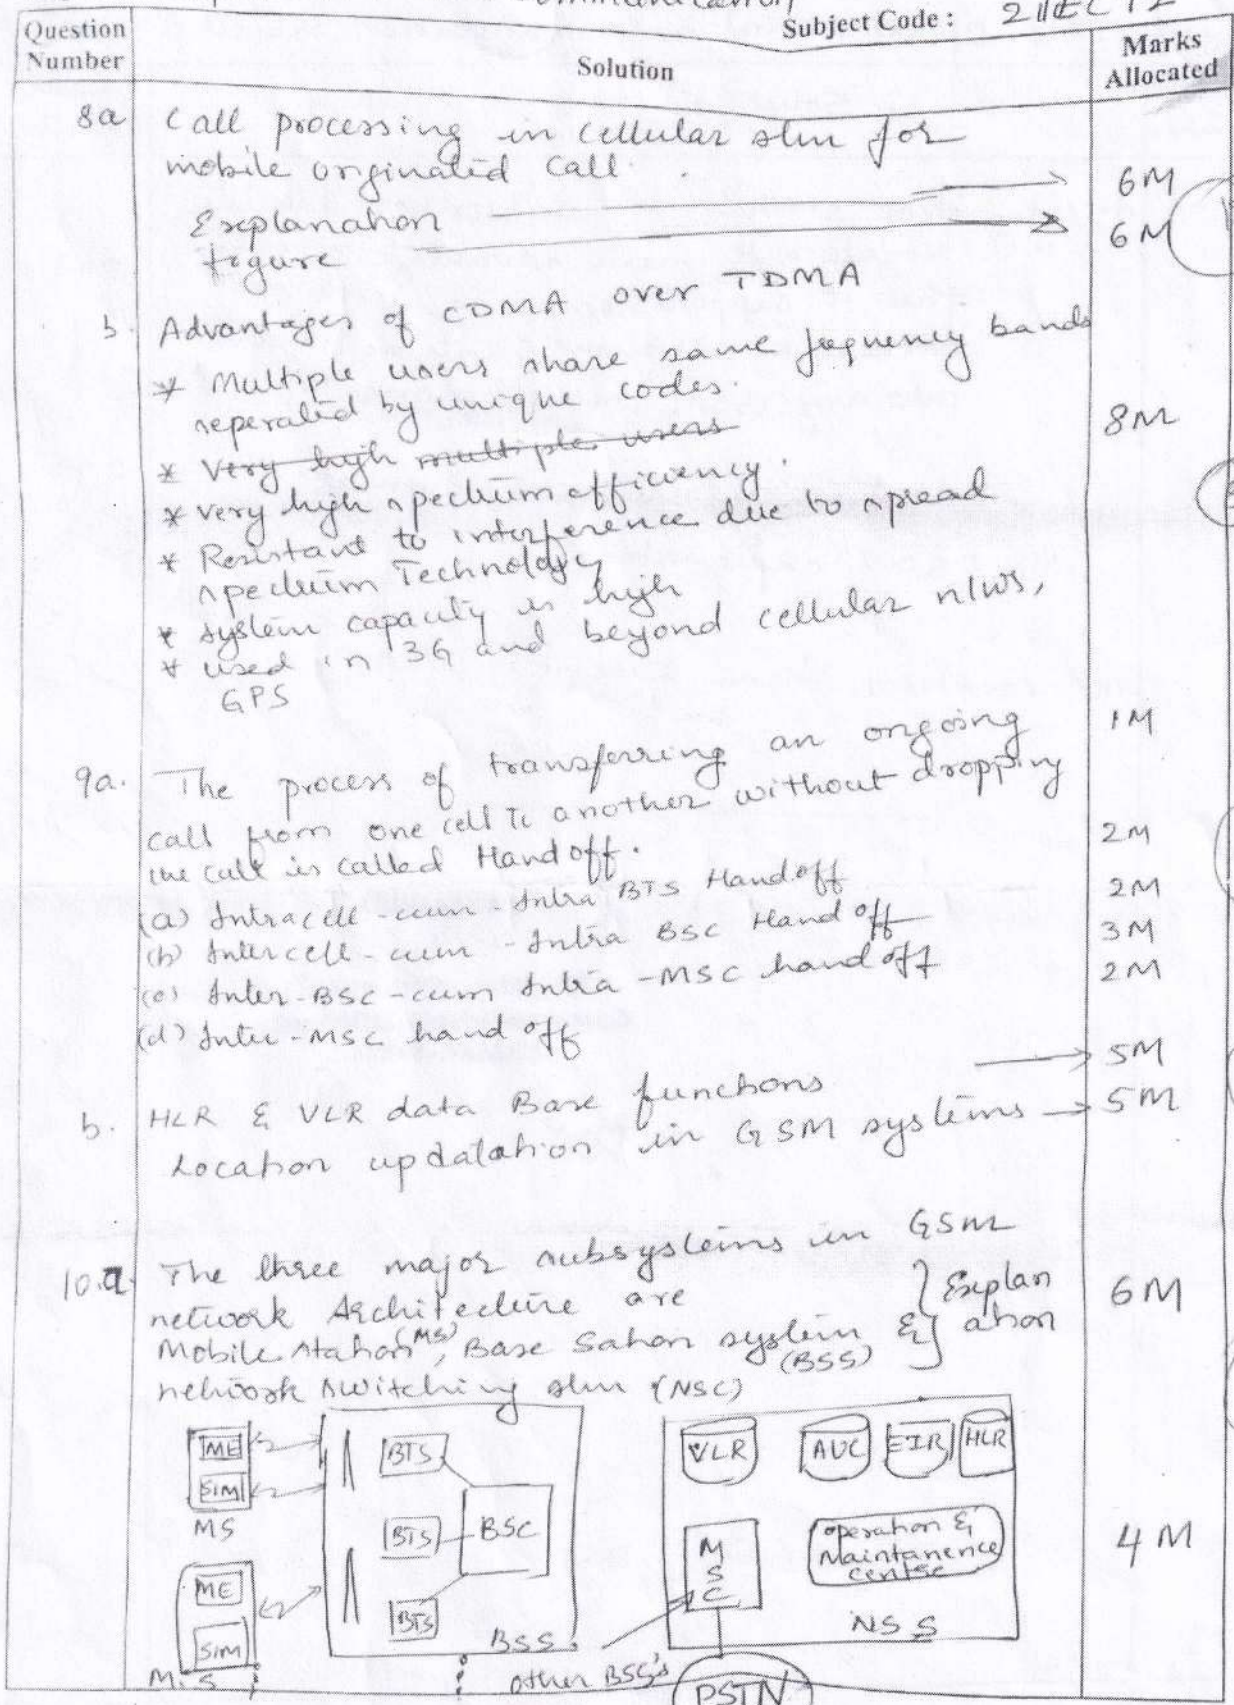 Communication
Subject Code :
Question Number
Solution
Marks Allocated
8a Call processing in cellular stm for
mobile originated call.
Explanation 6M
figure 6M
b. Advantages of CDMA over TDMA
* Multiple users share same frequency bands
seperated by unique codes. 8M
* Very high multiple users
* Very high spectrum efficiency.
* Resistant to interference due to spread
spectrum Technology
* System capacity is high
* used in 3G and beyond cellular n/ws,
GPS
9a. The process of transferring an ongoing 1M
call from one cell to another without dropping
the call is called Handoff. 2M
(a) Intracell-cum-Intra BTS Handoff 2M
(b) Intercell-cum-Intra BSC Handoff 3M
(c) Inter-BSC-cum Intra-MSC handoff 2M
(d) Inter-MSC handoff
b. HLR & VLR data Base functions 5M
Location updatation in GSM systems 5M
10.a. The three major subsystems in GSM
network Architecture are } Explan 6M
Mobile Station (MS), Base Sation system & } ation
(BSS)
network switching stm (NSC)
ME
SIM
MS
ME
SIM
M.S
BTS
BTS
BTS
BSC
BSS.
VLR AUC EIR HLR
MSC
operation &
Maintanence
centre
NSS
4M
other BSS's
PSTN